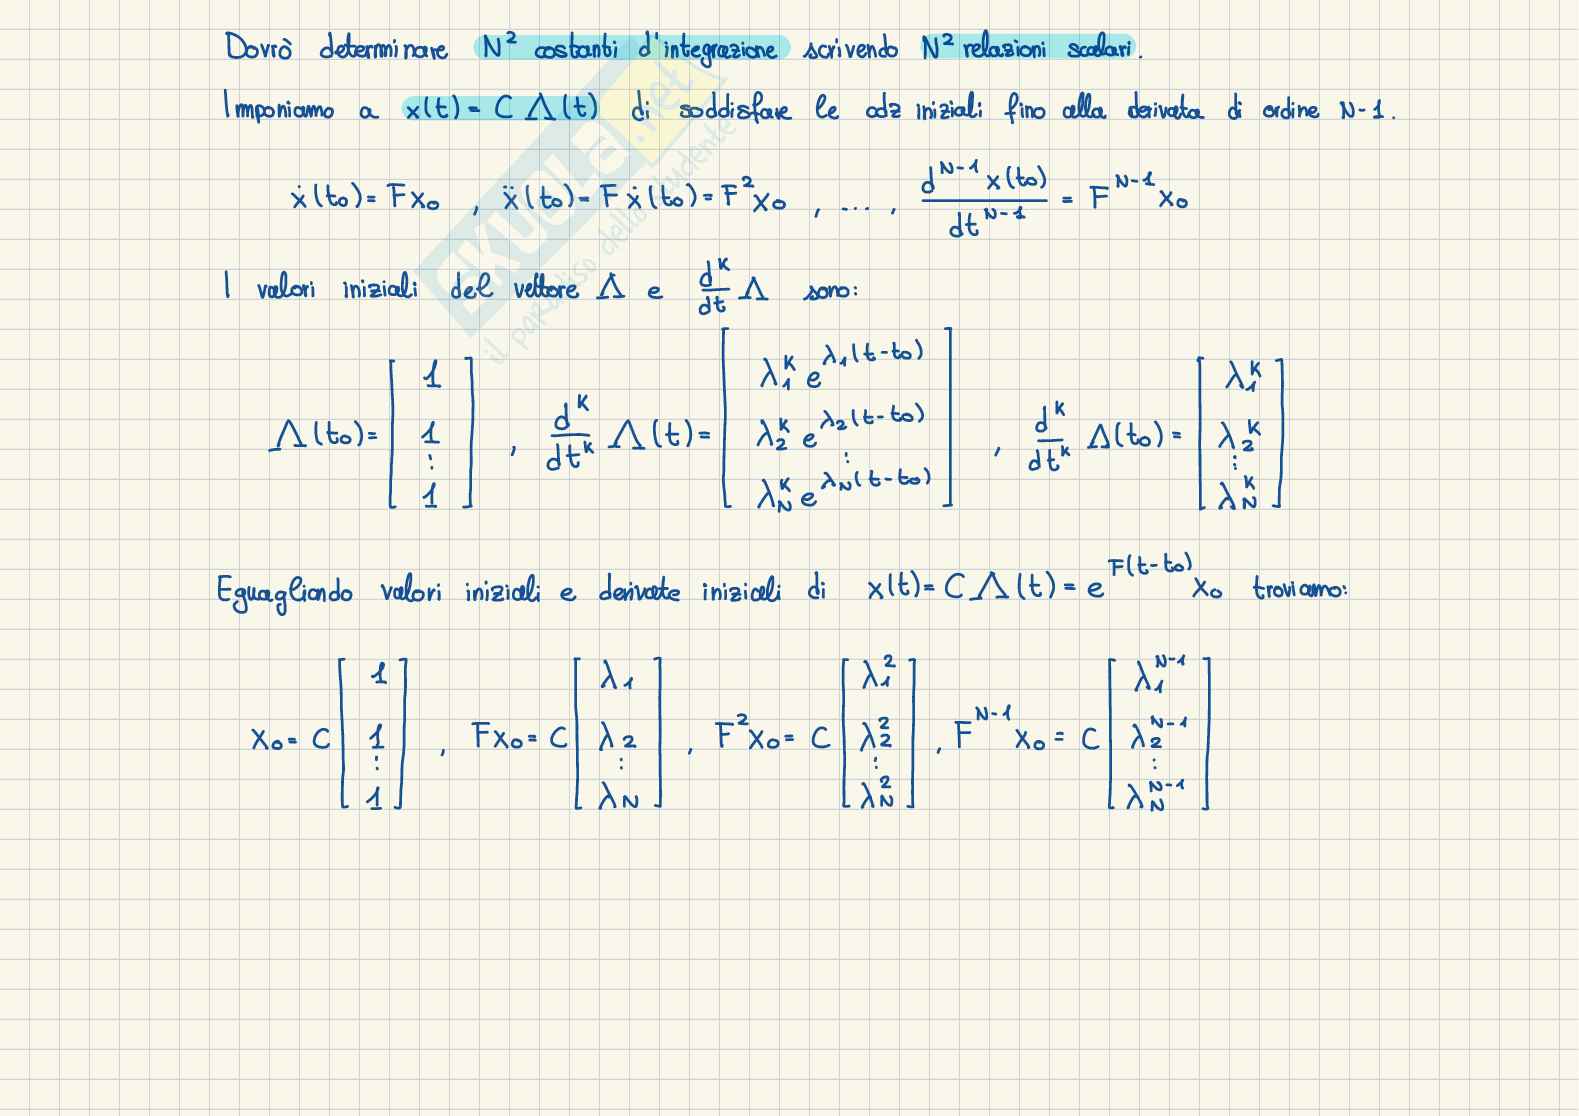 Dovrò determinare N² costanti d'integrazione scrivendo N² relazioni scalari.
Imponiamo a x(t) = C Λ(t) di soddisfare le cdz iniziali fino alla derivata di ordine N-1.
ẋ(t₀) = Fx₀ , ẍ(t₀) = Fẋ(t₀) = F²x₀ , ... , d^{N-1}x(t₀)/dt^{N-1} = F^{N-1}x₀
I valori iniziali del vettore Λ e d^K/dt Λ sono:
Λ(t₀) = [1 1 ⋮ 1] , d^K/dt^K Λ(t) = [λ₁^K e^{λ₁(t-t₀)} λ₂^K e^{λ₂(t-t₀)} ⋮ λ_N^K e^{λ_N(t-t₀)}] , d^K/dt^K Λ(t₀) = [λ₁^K λ₂^K ⋮ λ_N^K]
Eguagliando valori iniziali e derivate iniziali di x(t) = C Λ(t) = e^{F(t-t₀)} x₀ troviamo:
x₀ = C [1 1 ⋮ 1] , Fx₀ = C [λ₁ λ₂ ⋮ λ_N] , F²x₀ = C [λ₁² λ₂² ⋮ λ_N²] , F^{N-1}x₀ = C [λ₁^{N-1} λ₂^{N-1} ⋮ λ_N^{N-1}]
SKUOLA.net
il paradiso dello studente